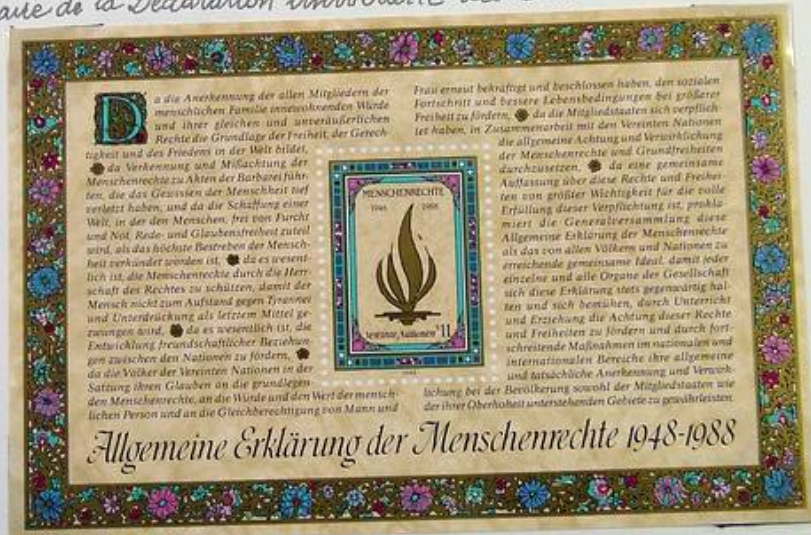 de la Déclaration universelle
Da die Anerkennung der allen Mitgliedern der
menschlichen Familie innewohnenden Würde
und ihrer gleichen und unveräußerlichen
Rechte die Grundlage der Freiheit, der Gerech-
tigkeit und des Friedens in der Welt bildet,
da Verkennung und Mißachtung der
Menschenrechte zu Akten der Barbarei führ-
ten, die das Gewissen der Menschheit tief
verletzt haben, und da die Schaffung einer
Welt, in der den Menschen, frei von Furcht
und Not, Rede- und Glaubensfreiheit zuteil
wird, als das höchste Bestreben der Mensch-
heit verkündet worden ist, da es wesent-
lich ist, die Menschenrechte durch die Herr-
schaft des Rechtes zu schützen, damit der
Mensch nicht zum Aufstand gegen Tyrannei
und Unterdrückung als letztem Mittel ge-
zwungen wird, da es wesentlich ist, die
Entwicklung freundschaftlicher Beziehun-
gen zwischen den Nationen zu fördern,
da die Völker der Vereinten Nationen in der
Satzung ihren Glauben an die grundlegen-
den Menschenrechte, an die Würde und den Wert der mensch-
lichen Person und an die Gleichberechtigung von Mann und
Frau erneut bekräftigt und beschlossen haben, den sozialen
Fortschritt und bessere Lebensbedingungen bei größerer
Freiheit zu fördern, da die Mitgliedstaaten sich verpflich-
tet haben, in Zusammenarbeit mit den Vereinten Nationen
die allgemeine Achtung und Verwirklichung
der Menschenrechte und Grundfreiheiten
durchzusetzen, da eine gemeinsame
Auffassung über diese Rechte und Freihei-
ten von größter Wichtigkeit für die volle
Erfüllung dieser Verpflichtung ist, prokla-
miert die Generalversammlung diese
Allgemeine Erklärung der Menschenrechte
als das von allen Völkern und Nationen zu
erreichende gemeinsame Ideal, damit jeder
einzelne und alle Organe der Gesellschaft
sich diese Erklärung stets gegenwärtig hal-
ten und sich bemühen, durch Unterricht
und Erziehung die Achtung dieser Rechte
und Freiheiten zu fördern und durch fort-
schreitende Maßnahmen im nationalen und
internationalen Bereiche ihre allgemeine
und tatsächliche Anerkennung und Verwirk-
lichung bei der Bevölkerung sowohl der Mitgliedstaaten wie
der ihrer Oberhoheit unterstehenden Gebiete zu gewährleisten.
MENSCHENRECHTE
1948 1988
Vereinte Nationen S11
Allgemeine Erklärung der Menschenrechte 1948-1988